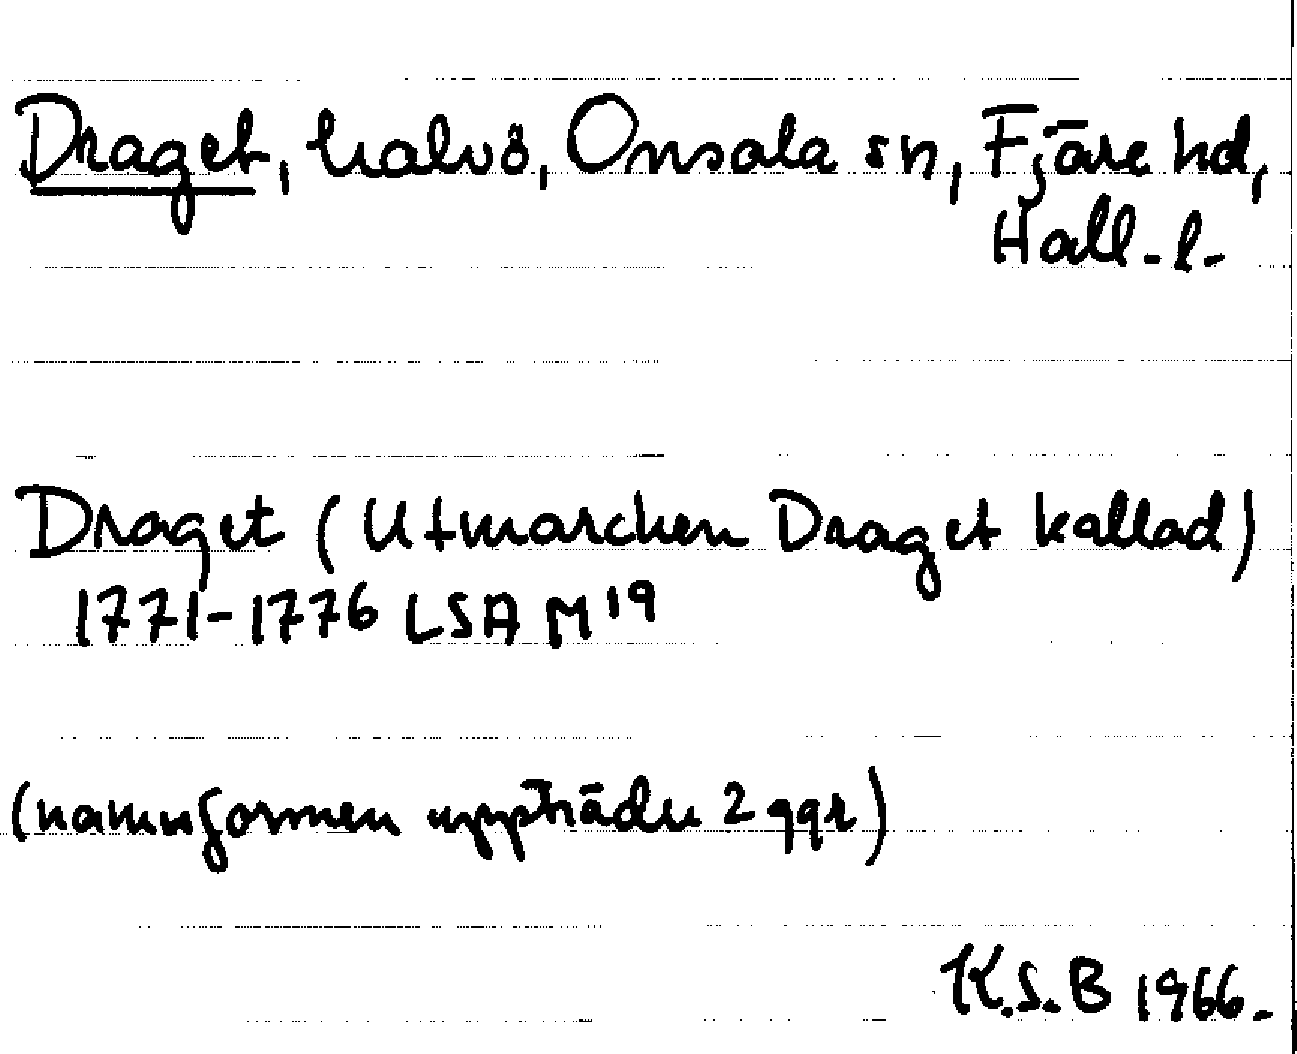 Draget, halvö, Onsala sn, Fjäre hd,
Hall. l.
Draget (Utmarcken Draget kallad)
1771-1776 LSA M19
(namnformen uppträder 2 ggr)
K.S.B 1966.